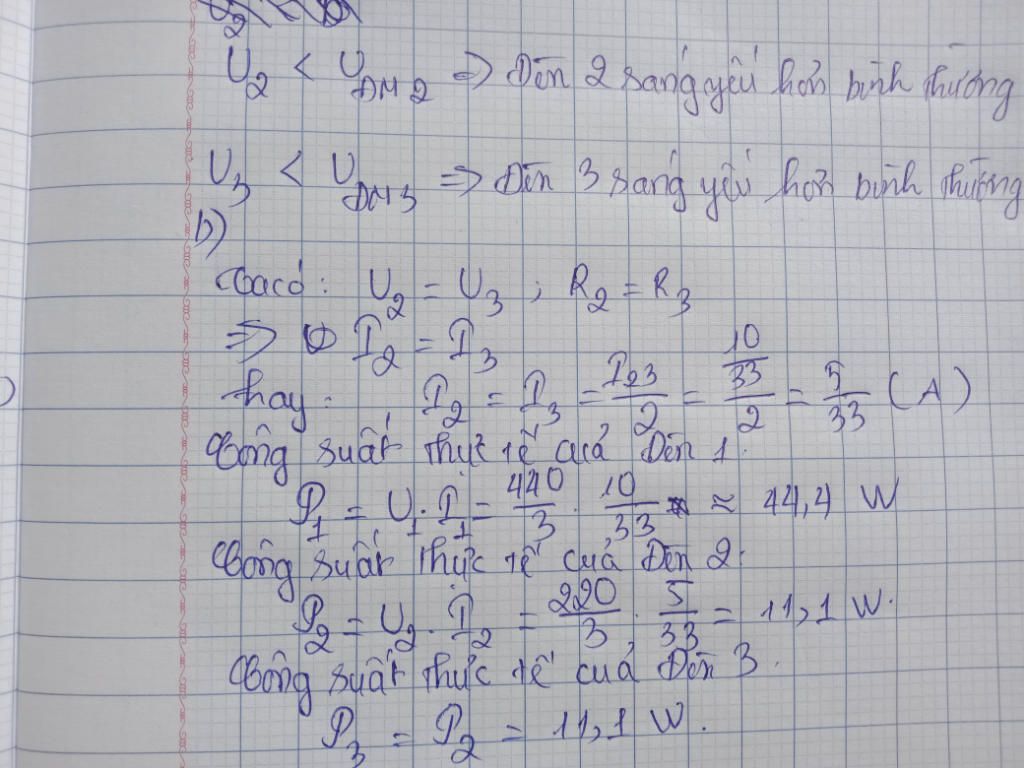 U₂ < U_ĐM2 => Đèn 2 sáng yếu hơn bình thường
U₃ < U_ĐM3 => Đèn 3 sáng yếu hơn bình thường
b)
Ta có: U₂ = U₃ ; R₂ = R₃
=> I₂ = I₃
hay: I₂ = I₃ = I₂₃/2 = (10/33)/2 = 5/33 (A)
Công suất thực tế của Đèn 1.
P₁ = U₁.I₁ = 440/3 . 10/33 ≈ 44,4 W
Công suất thực tế của Đèn 2.
P₂ = U₂.I₂ = 220/3 . 5/33 = 11,1 W.
Công suất thực tế của Đèn 3.
P₃ = P₂ = 11,1 W.